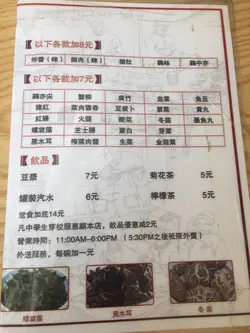 【以下各款加8元】
炸醬(辣) 腩肉(辣) 豬肚 雞絲
【以下各款加7元】
蟹柳 腐竹 韮菜 魚旦
豬紅 菜肉雲吞 豆腐卜 紫菜 魚片
紅腸 火腿 酸菜 冬菇 墨魚丸
螺旋藻 芝士腸 蘿白 芽菜
黑木耳 榨菜肉醬 生菜 金菇菜
【飲品】
豆漿 7元 菊花茶 5元
罐裝汽水 6元 檸檬茶 5元
堂食加底14元
凡中學生穿校服惠顧本店，飲品優惠減2元
營業時間：11:00AM–6:00PM (5:30PM之後祗限外賣)
外送服務，每碗加一元
螺旋藻 黑木耳 冬菇